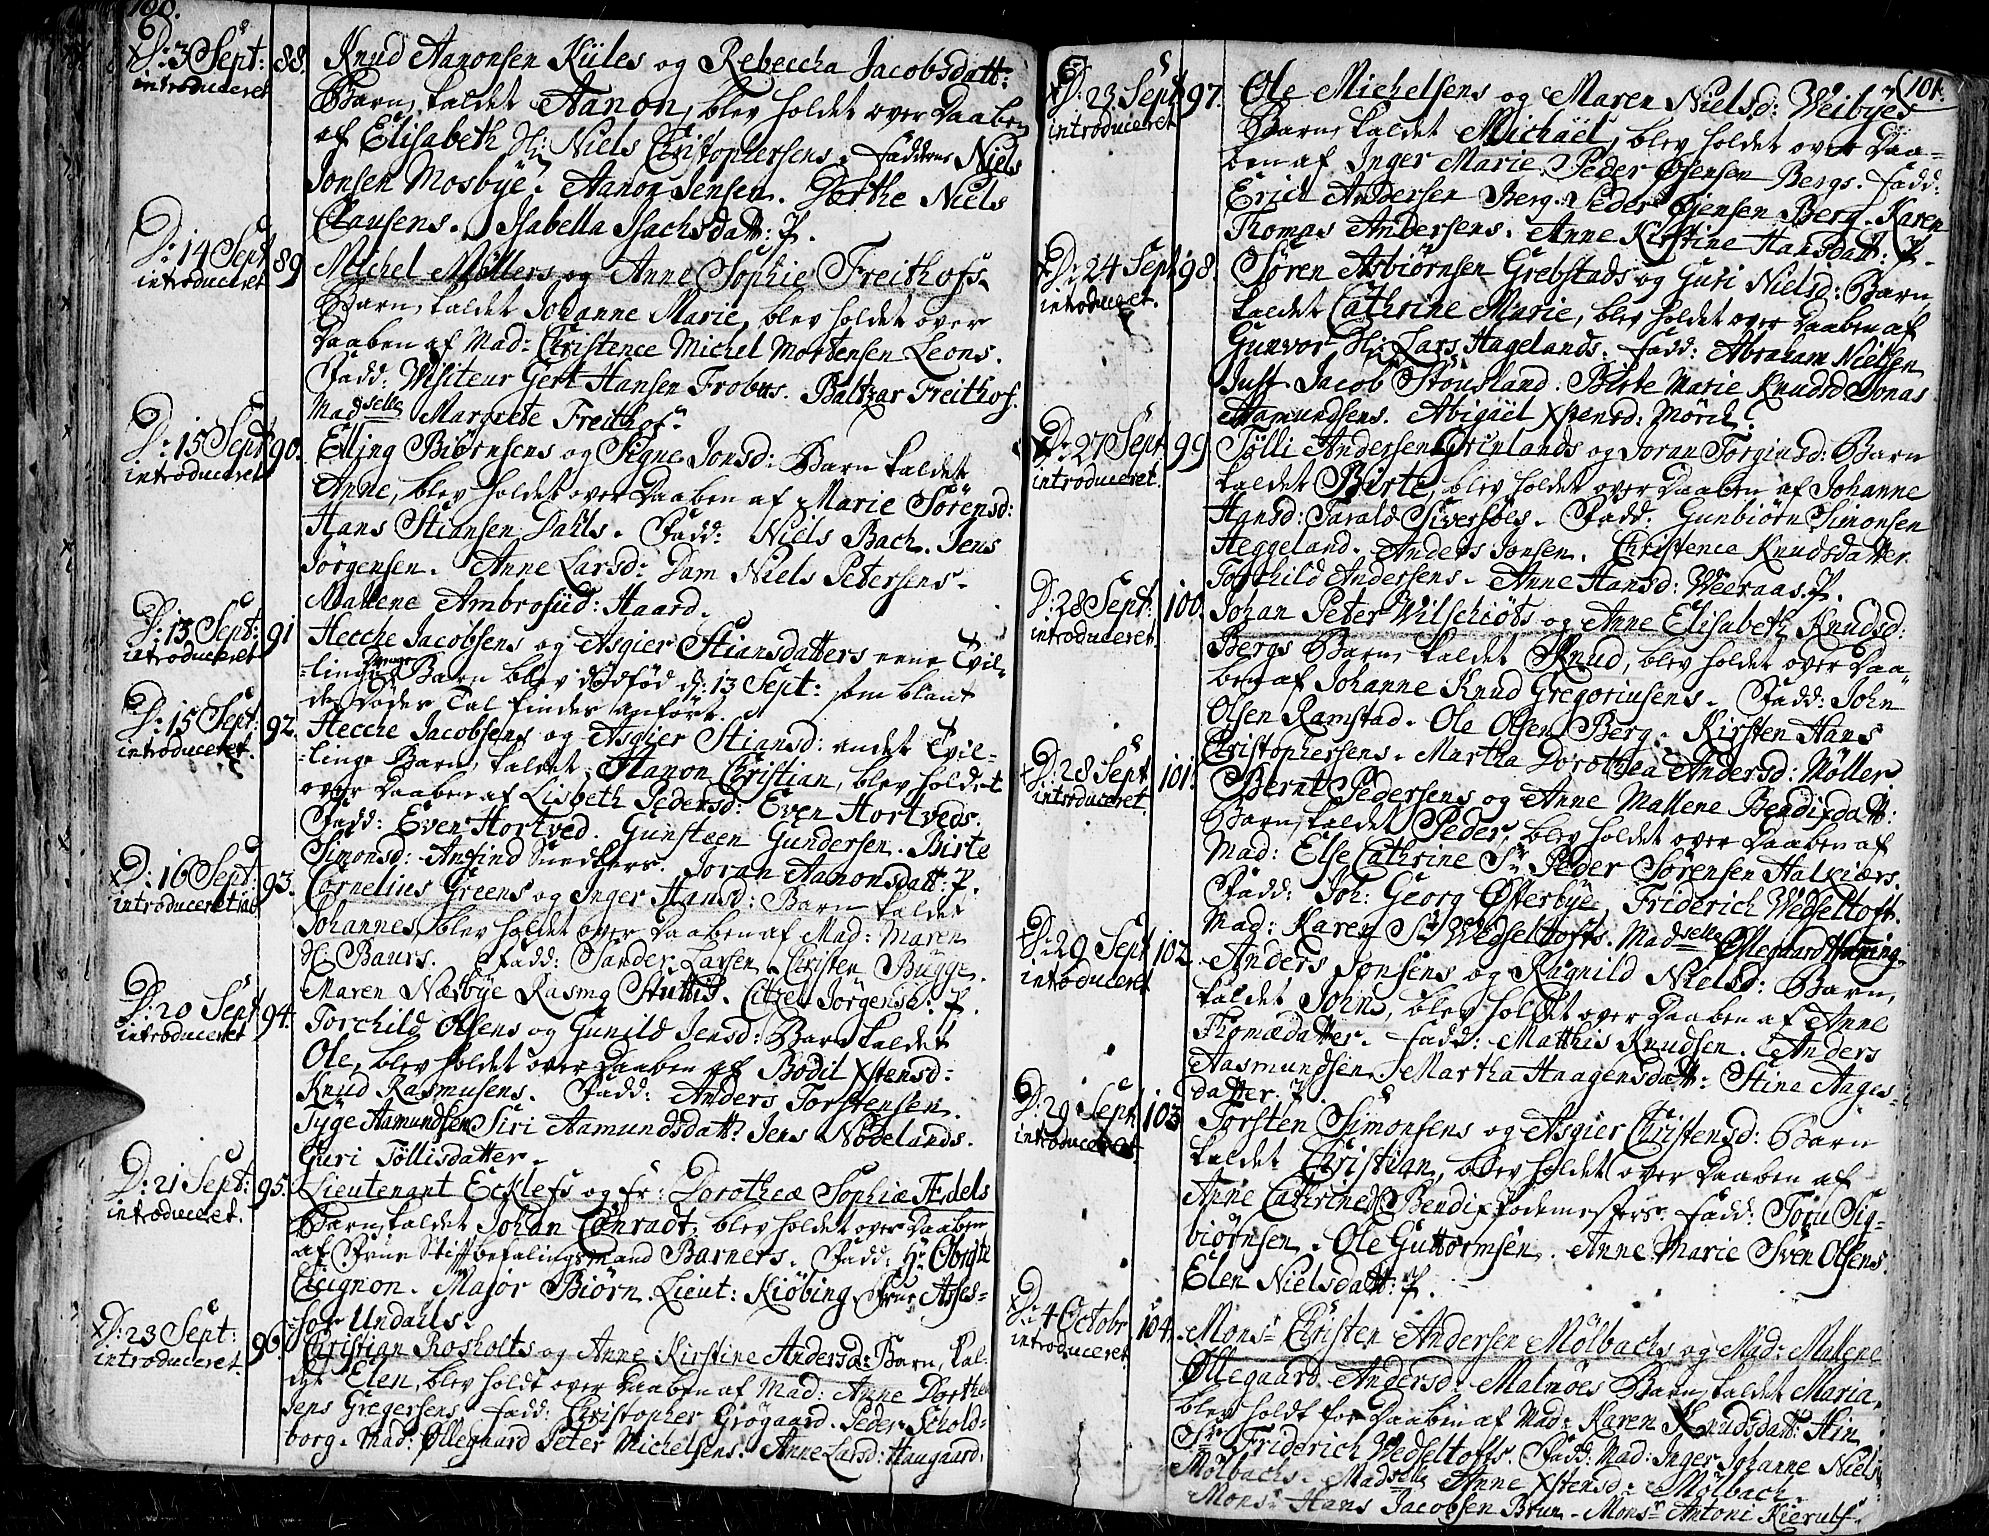 100.
D: 3 Sept: 88. Knud Aanonsen Kiiles og Rebeccha Jacobsdatt:
introduceret Barn, kaldet Aanon, blev holdet over Daaben
af Elisabeth Sl: Niels Christophersens. Fadderne Niels
Jonsen Mosbye. Aanon Jensen. Dorthe Niels
Clausens. Isabella Isachsdatt: p.
D: 14 Sept 89 Michel Møllers og Anne Sophie Freithofs
introduceret Barn, kaldet Johanne Marie, blev holdet over
Daaben af Mad: Christence Michel Mortensen Leons.
Fadd: Visiteur Gert Hansen Frobus. Baltzar Freithof.
Madselle Margrete Freithof.
D: 15 Sept 90. Elling Biørnsens og Signe Jonsd: Barn kaldet
introduceret Anne, blev holdet over Daaben af Marie Sørensd:
Hans Stiansen Dahls. Fadd: Niels Bach. Jens
Jørgensen. Anne Larsd: Dam Niels Petersens.
Mallene Ambrosiid: Haard.
D: 13 Sept: 91 Hecche Jacobsens og Asgier Stiansdatters eene Tvil-
introduceret -linge Drenge Barn blev dødfød d: 13 Sept: som blant
de Dødes Tal findes anført.
D: 15 Sept: 92. Hecche Jacobsens og Asgier Stiansd: andet Tvil-
introduceret. -linge Barn, kaldet Aanon Christian, blev holdet
over Daaben af Lisbeth Pedersd: Even Hortveds.
Fadd: Even Hortved. Gunsteen Gundersen. Birte
Simonsd: Anfind Snedkers. Joran Aanonsdatt: p.
D: 16 Sept: 93. Cornelius Greens og Inger Hansd: Barn kaldet
introduceret Johannes, blev holdet over Daaben af Mad: Maren
Sl: Baurs. Fadd: Sander Larsen. Christen Bugge.
Maren Næsbye Rasmg Stuttis. Citzel Jørgensd: p.
D: 20 Sept 94. Torchild Olsens og Gunild Jensd: Barn kaldet
introduceret Ole, blev holdet over Daaben af Bodil Xstensd:
Knud Rasmusens. Fadd: Anders Torstensen.
Tyge Aamundsen. Siri Aamundsdatt: Jens Nødelands.
Guri Tøllisdatter.
D: 21 Sept: 95. Lieutenant Ecklefs og Fr: Dorotheæ Sophiæ Hedels
introduceret. Barn, kaldet Johan Conradt, blev holdet over Daaben
af Frue Stiftbefalingsmand Barners. Fadd: Hr Obriste
Eeignon. Major Biørn. Lieut: Kiøbing. Frue Asses-
-sor Undahls.
D: 23 Sept: 96. Christian Rosholts og Anne Kirstine Andersd: Barn, kal-
introduceret. det Elen, blev holdt over Daaben af Mad: Anne Dorthe
Jens Gregersens. Fadd: Christopher Grøgaard. Peder Schold-
borg. Mad: Øllegaard Peter Michelsens. Anne Larsd: Haugaard.
101.
D: 23 Sept 97. Ole Michelsens og Maren Nielsd: Veibyes
introduceret Barn, kaldet Michäel, blev holdet over Daa-
ben af Inger Marie Peder Øjensen Bergs. Fadd:
Erich Andersen Berg. Peder Øjensen Berg. Karen
Thomas Andersens. Anne Kirstine Hansdatt: p.
D: 24 Sept 98. Søren Asbiørnsen Grebstads og Guri Nielsd: Barn
introduceret. kaldet Cathrine Marie, blev holdet over Daaben af
Gunvor Sl: Lars Hagelands. Fadd: Abraham Nielsen
Just Jacob Stousland. Birte Marie Knudsd Jonas
Aamundsens. Abigäel Xstensd: Mörch.
D: 27 Sept. 99 Tølli Andersen Grinlands og Joran Torgiusd: Barn
introduceret. kaldet Birte, blev holdet over Daaben af Johanne
Hansd: Tarald Siversøes. Fadd: Gunbiørn Simonsen
Heggeland. Anders Jonsen. Christence Knudsdatter.
Torchild Andersens. Anne Hansd: Weeraas. p.
D: 28 Sept: 100. Johan Peter Wilschiøts og Anne Elisabeth Knudsd:
introduceret Bergs Barn, kaldet Knud, blev holdet over Daa-
ben af Johanne Knud Gregoriusens. Fadd: John
Olsen Ramstad. Ole Olsen Berg. Kirsten Hans
Christophersens. Martha Dorothea Andersd: Møller.
D: 28 Sept 101. Bernt Pedersens og Anne Mallene Bendixdatt:
introduceret Barn, kaldet Peder, blev holdet over Daaben af
Mad: Else Cathrine Sr Peder Sørensen Halkiærs.
Fadd: Joh: Georg Østerbye. Friderich Wedseltoft.
Mad: Karen Sr Wedseltofts. Madselle Øllegaard Henning.
D: 29 Sept 102 Anders Jonsens og Ragnild Nielsd: Barn,
introduceret kaldet John, blev holdet over Daaben af Anne
Thomædatter. Fadd: Matthis Knudsen. Anders
Aasmundsen. Martha Haagensdatt: Stine Aages-
datter. p.
D: 29 Sept 103 Torsten Simonsens og Asgier Christensd: Barn
introduceret kaldet Christian, blev holdet over Daaben af
Anne Cathrine Bendix Podemesters. Fadd: Toru Sig-
biørnsen. Ole Guttormsen. Anne Marie Sven Olsens.
Elen Nielsdatt: p.
D: 4 Octobr 104. Monsr Christen Andersen Mölbachs og Mad: Mallene
introduceret Øllegaard Andersd: Malmøes Barn, kaldet Maria,
blev holdt for Daaben af Mad: Karen Knudsdatt: Hin
Sr Friderich Wedseltofts. Fadd: Mad: Inger Johanne Niels
Mølbachs. Madselle Anne Xstensd: Mölbach.
Monsr Hans Jacobsen Brun. Monsr Antoni Kierulf.